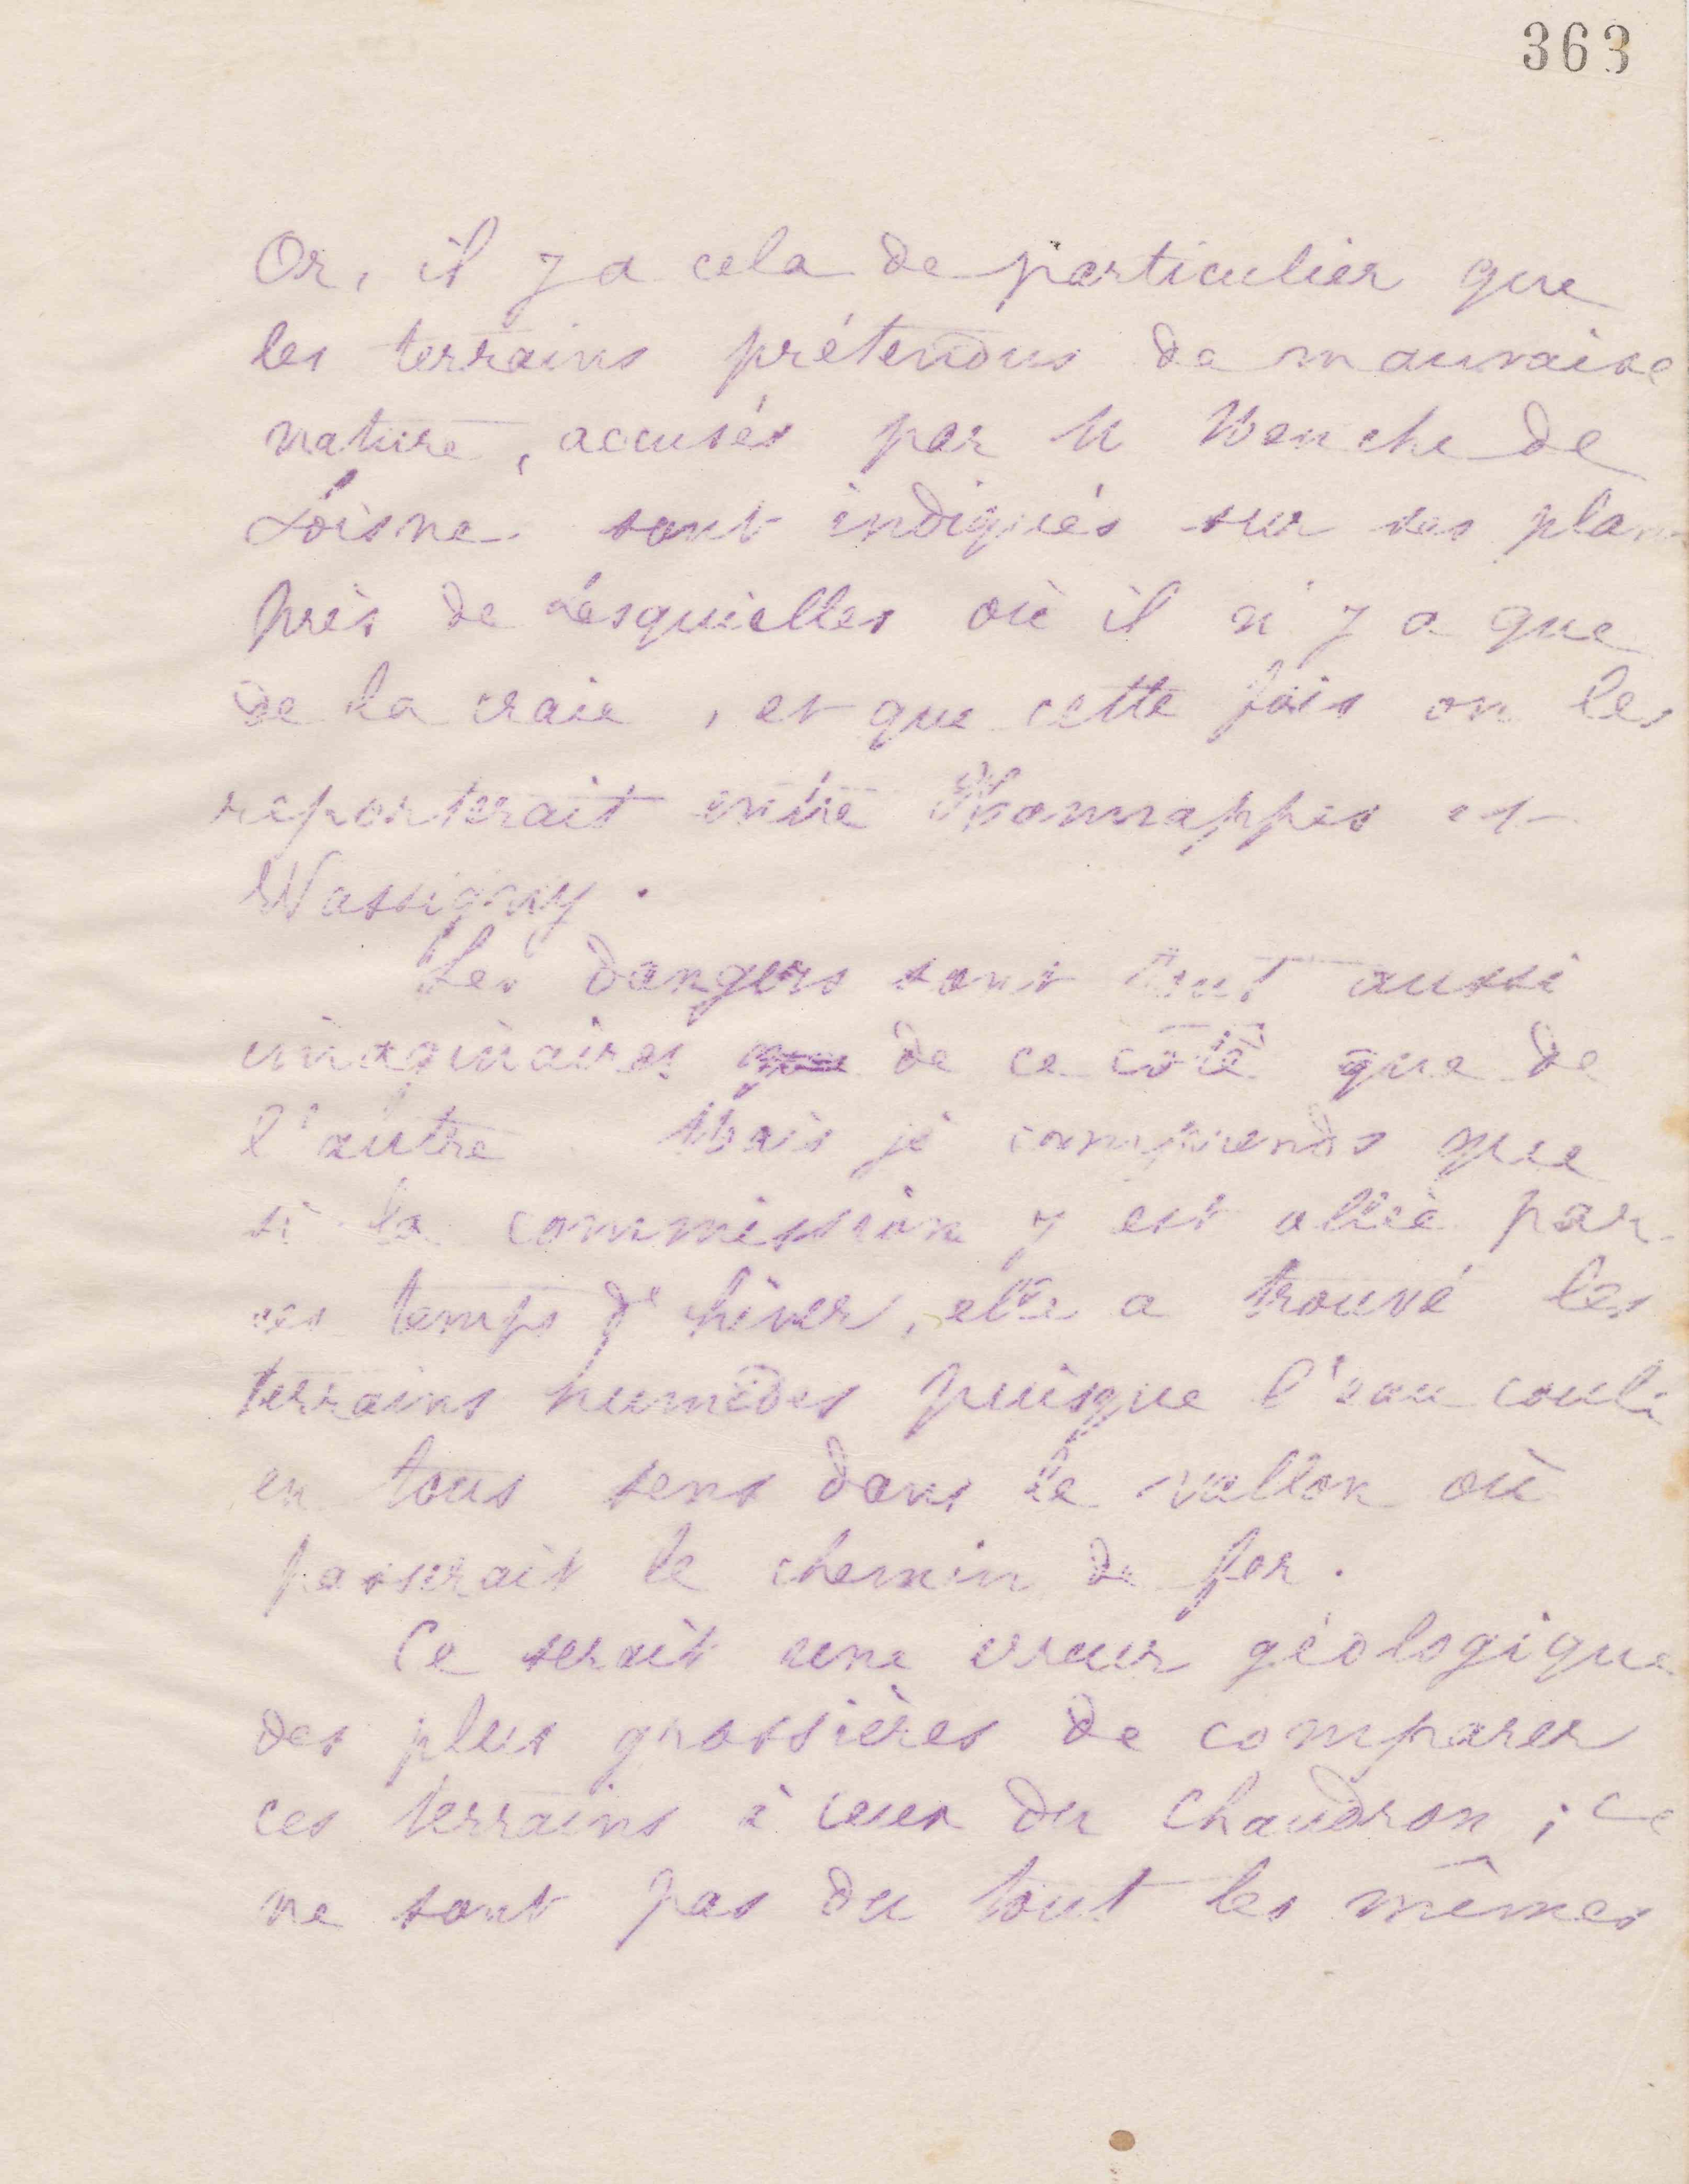 363
Or, il y a cela de particulier que
les terrains prétendus de mauvaise
nature, accusés par M Menche de
Loisne sont indiqués sur ses plans
près de Lesquielles où il n'y a que
de la craie, et que cette fois on les
reporterait entre Mennappes et
Wassigny.
Les dangers sont tout aussi
imaginaires que de ce côté que de
l'autre Mais je comprends que
si la commission y est allée par
ces temps d'hiver, elle a trouvé les
terrains humides puisque l'eau coule
en tous sens dans le vallon où
passerait le chemin de fer.
Ce serait une erreur géologique
des plus grossières de comparer
ces terrains à ceux du Chaudron ; ce
ne sont pas du tout les mêmes